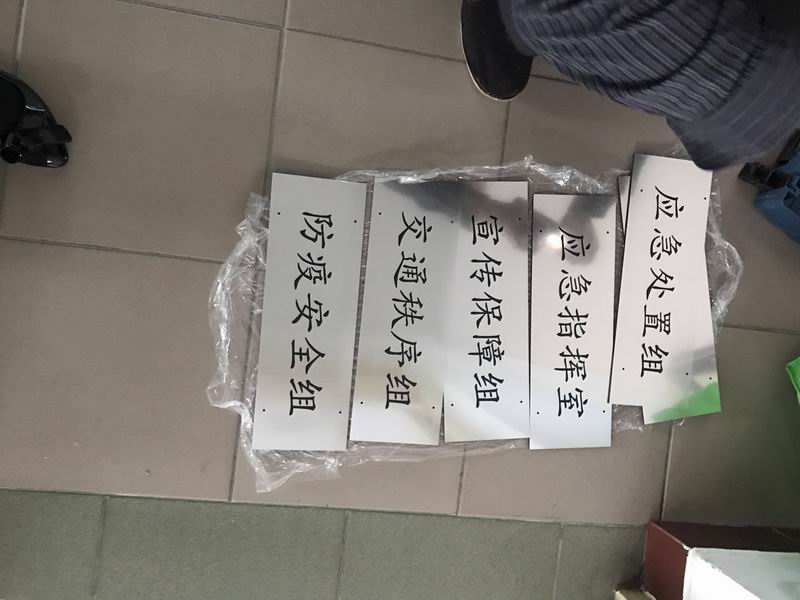 防疫安全组
交通秩序组
宣传保障组
应急指挥室
应急处置组